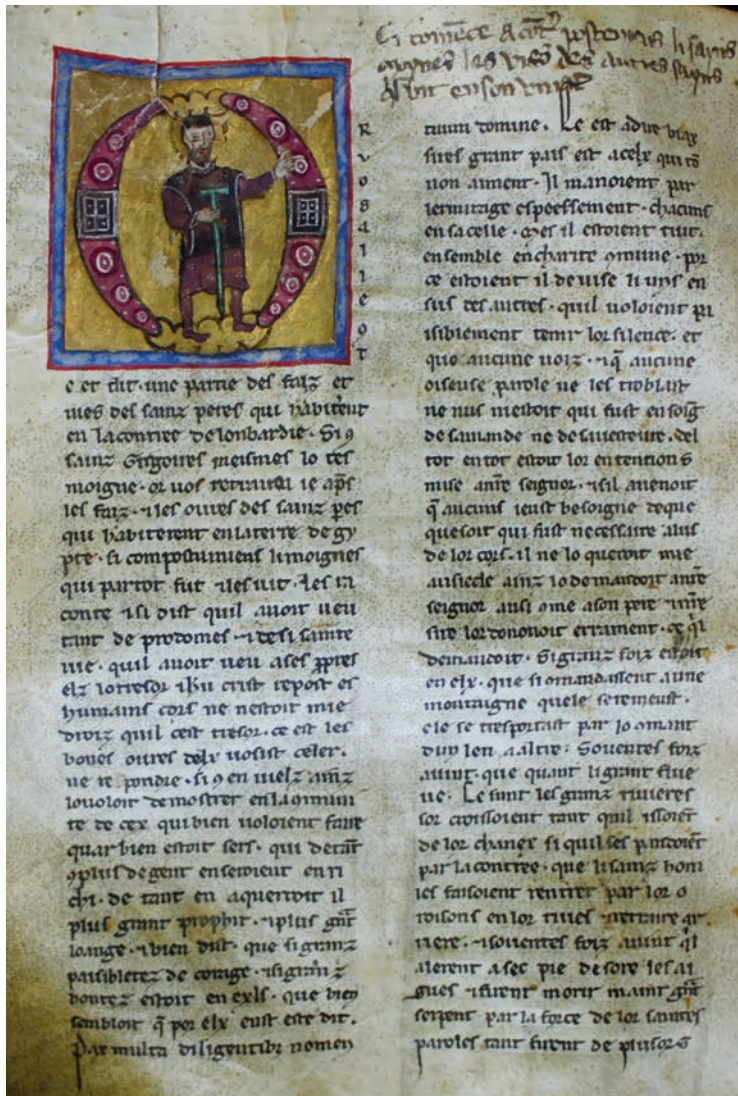 Ci comẽce Acõt' postomius li sains
moynes les vies des autres sains
R
V
O
S
A
I
I
E
O
T
e et dit une partie des faiz et
mes des sainz peres qui habiterent
en la contree de lonbardie. Si 9
sainz Gregoires meismes lo tes
moigne. or uos retrairai ie ap̃s
les faiz. ⁊ les oures des sainz pes
qui habiterent en la terre de gy
pte. si com postumiens li moignes
qui partot fut ⁊ les uit. les ra
conte ⁊ si dist quil auoit ueu
tant de prodomes. ⁊ de si sainte
uie. quil auoit ueu a ses ppres
elz lo tresor ihu crist repost es
humains cors ne nestoit mie
droiz quil cest tresor. ce est les
bones oures delx uosist celer.
ne re pondre. si 9 en uielz ainz
lo uoloit demostrer en la qmun
te de cex qui bien uoloient faire
quar bien estoit sers. qui de tãt
9 plus de gent en seroient enri
chi. de tant en aquerroit il
plus grant prophit. ⁊ plus gñt
loange. ⁊ bien dist. que si granz
paisibletez de corage. ⁊ si grãnz
bontez estoit en exls. que bien
sembloit q̃ por elx eust este dit.
Pax multa diligentibz nomen
tuum domine. Ce est adire biax
sires grant pais est a celx qui tõ
non aiment. Il manoient par
lermitage espeessement. chacuns
en sa celle. mes il estoient tuit
ensemble en charite qmune. por
ce estoient il deuise li uns en
sus des autres. quil uoloient pa
isiblement tenir lor silence. et
que aucune uoiz. ⁊ q̃ aucune
oiseuse parole ne les troblast
ne nus niestoit qui fust en soig̃
de sauiande ne de sauesteure. del
tot en tot estoit lor entention 9
mise anr̃e seignor. ⁊ sil auenoit
q̃ aucuns ieust besoigne de que
que soit qui fust necessaire a lus
de lor cors. il ne lo queroit mie
au siecle ainz lo demandoit anr̃e
seignor ausi qme a son pere ⁊ nr̃e
sire lor dononoit erraument. ce q̃l
demandoit. Si granz foiz estoit
en elx. que si omandassent a une
montaigne quele se remeust.
ele se tresportast par lo qmant
dun leu a altre. Souentes foiz
auint. que quant li grant flue
ue. Ce sunt les granz riuieres
sor croissoient tant quil issoiẽt
de lor chanex si quil ses pandoiẽt
par la contree. que li sainz hom
ies faisoient rentrer par lor o
roisons en lor riues ⁊ retraire ar
riere. ⁊ souentes foiz auint q̃l
alerent a sec pie desore les ai
gues ⁊ firent morir maint gñt
serpent par la force de lor saintes
paroles tant furent de plusors